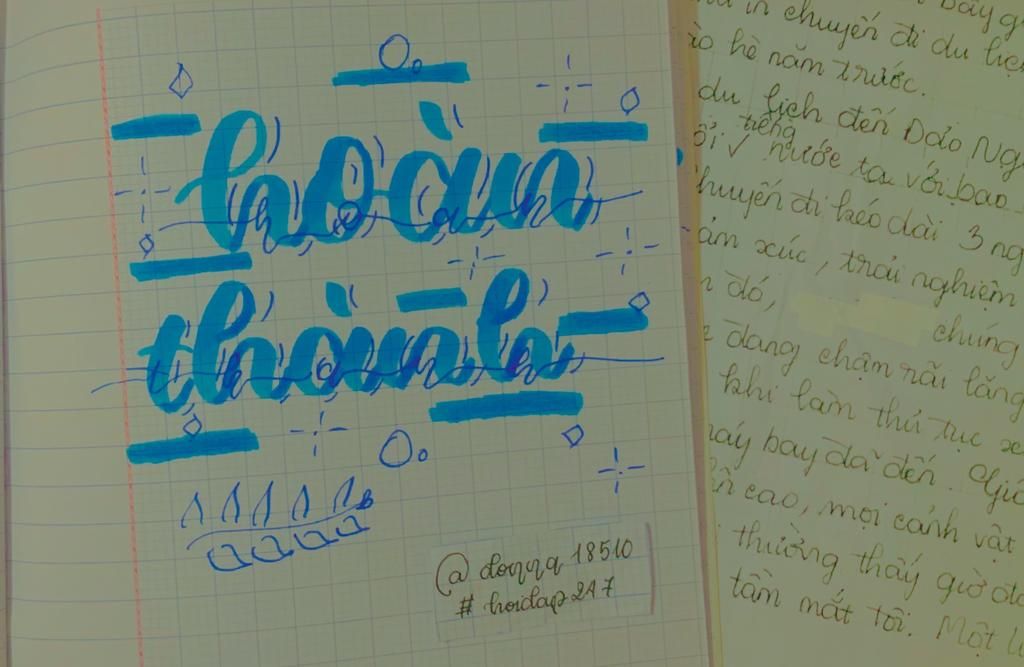 hoàn
thành
@donna 18510
# hoidap247
bây
chuyến đi du lịch
hè năm trước.
du lịch đến Đảo
tiếng
nước ta với bao
chuyến đi kéo dài 3
xúc, trải nghiệm
đó, chúng
đang chậm rãi
khi làm thủ tục
bay đã đến.
cao, mọi cảnh vật
thường thấy giờ
tầm mắt tôi. Một